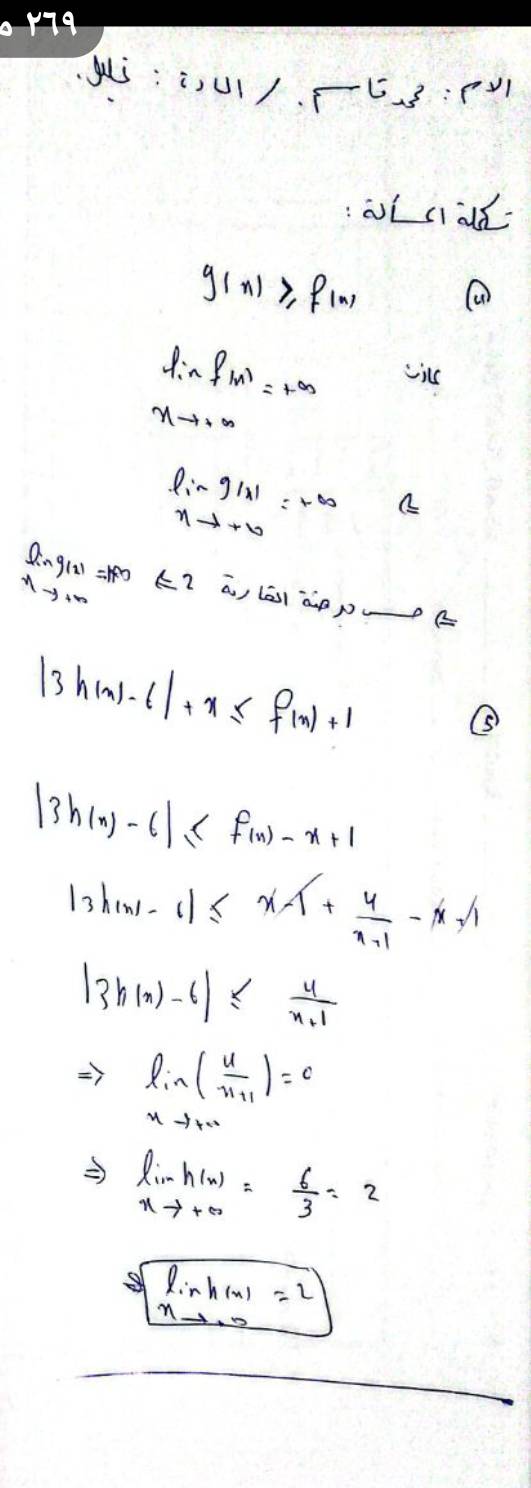 ٢٦٩
الاسم : محمد قاسم . / المادة : تحليل .
تكملة المسألة :
④ g(x) ≥ f(x)
lim f(x) = +∞
x → +∞
lim g(x) = +∞
x → +∞
⇐ حسب مبرهنة المقارنة 2 ⇐ lim g(x) = +∞
x → +∞
⑤ |3h(x) - 6| + x ≤ f(x) + 1
|3h(x) - 6| ≤ f(x) - x + 1
|3h(x) - 6| ≤ x - 1 + 4/(x+1) - x + 1
|3h(x) - 6| ≤ 4/(x+1)
⇒ lim (4/(x+1)) = 0
x → +∞
⇒ lim h(x) = 6/3 = 2
x → +∞
⇒ lim h(x) = 2
x → +∞